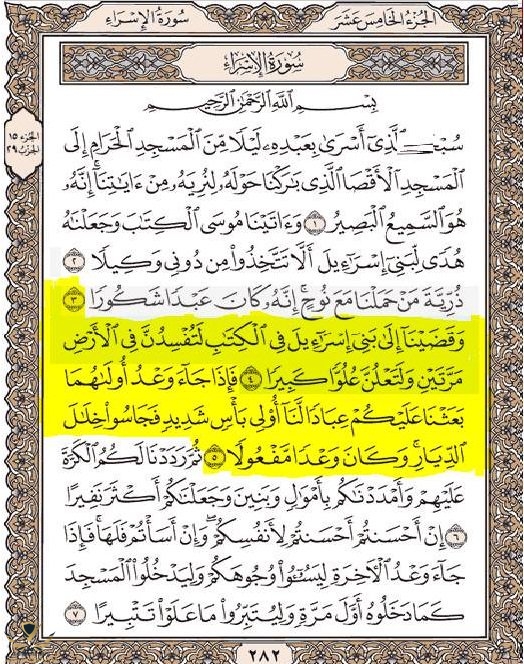 الجُزْءُ الخَامِسَ عَشَرَ سُورَةُ الإِسْرَاءِ
سُورَةُ الإِسْرَاءِ
بِسْمِ ٱللَّهِ ٱلرَّحْمَٰنِ ٱلرَّحِيمِ
ٱلَّذِىٓ أَسْرَىٰ بِعَبْدِهِۦ لَيْلًا مِّنَ ٱلْمَسْجِدِ ٱلْحَرَامِ إِلَى
الجزء ١٥
الحزب ٢٩
ٱلْمَسْجِدِ ٱلْأَقْصَا ٱلَّذِى بَٰرَكْنَا حَوْلَهُۥ لِنُرِيَهُۥ مِنْ ءَايَٰتِنَآ ۚ إِنَّهُۥ
هُوَ ٱلسَّمِيعُ ٱلْبَصِيرُ ١ وَءَاتَيْنَا مُوسَى ٱلْكِتَٰبَ وَجَعَلْنَٰهُ
هُدًى لِّبَنِىٓ إِسْرَٰٓءِيلَ أَلَّا تَتَّخِذُوا۟ مِن دُونِى وَكِيلًا ٢
ذُرِّيَّةَ مَنْ حَمَلْنَا مَعَ نُوحٍ ۚ إِنَّهُۥ كَانَ عَبْدًا شَكُورًا ٣
وَقَضَيْنَآ إِلَىٰ بَنِىٓ إِسْرَٰٓءِيلَ فِى ٱلْكِتَٰبِ لَتُفْسِدُنَّ فِى ٱلْأَرْضِ
مَرَّتَيْنِ وَلَتَعْلُنَّ عُلُوًّا كَبِيرًا ٤ فَإِذَا جَآءَ وَعْدُ أُولَىٰهُمَا
بَعَثْنَا عَلَيْكُمْ عِبَادًا لَّنَآ أُو۟لِى بَأْسٍ شَدِيدٍ فَجَاسُوا۟ خِلَٰلَ
ٱلدِّيَارِ ۚ وَكَانَ وَعْدًا مَّفْعُولًا ٥ ثُمَّ رَدَدْنَا لَكُمُ ٱلْكَرَّةَ
عَلَيْهِمْ وَأَمْدَدْنَٰكُم بِأَمْوَٰلٍ وَبَنِينَ وَجَعَلْنَٰكُمْ أَكْثَرَ نَفِيرًا
٦ إِنْ أَحْسَنتُمْ أَحْسَنتُمْ لِأَنفُسِكُمْ ۖ وَإِنْ أَسَأْتُمْ فَلَهَا ۚ فَإِذَا
جَآءَ وَعْدُ ٱلْءَاخِرَةِ لِيَسُۥٓـُٔوا۟ وُجُوهَكُمْ وَلِيَدْخُلُوا۟ ٱلْمَسْجِدَ
كَمَا دَخَلُوهُ أَوَّلَ مَرَّةٍ وَلِيُتَبِّرُوا۟ مَا عَلَوْا۟ تَتْبِيرًا ٧
٢٨٢